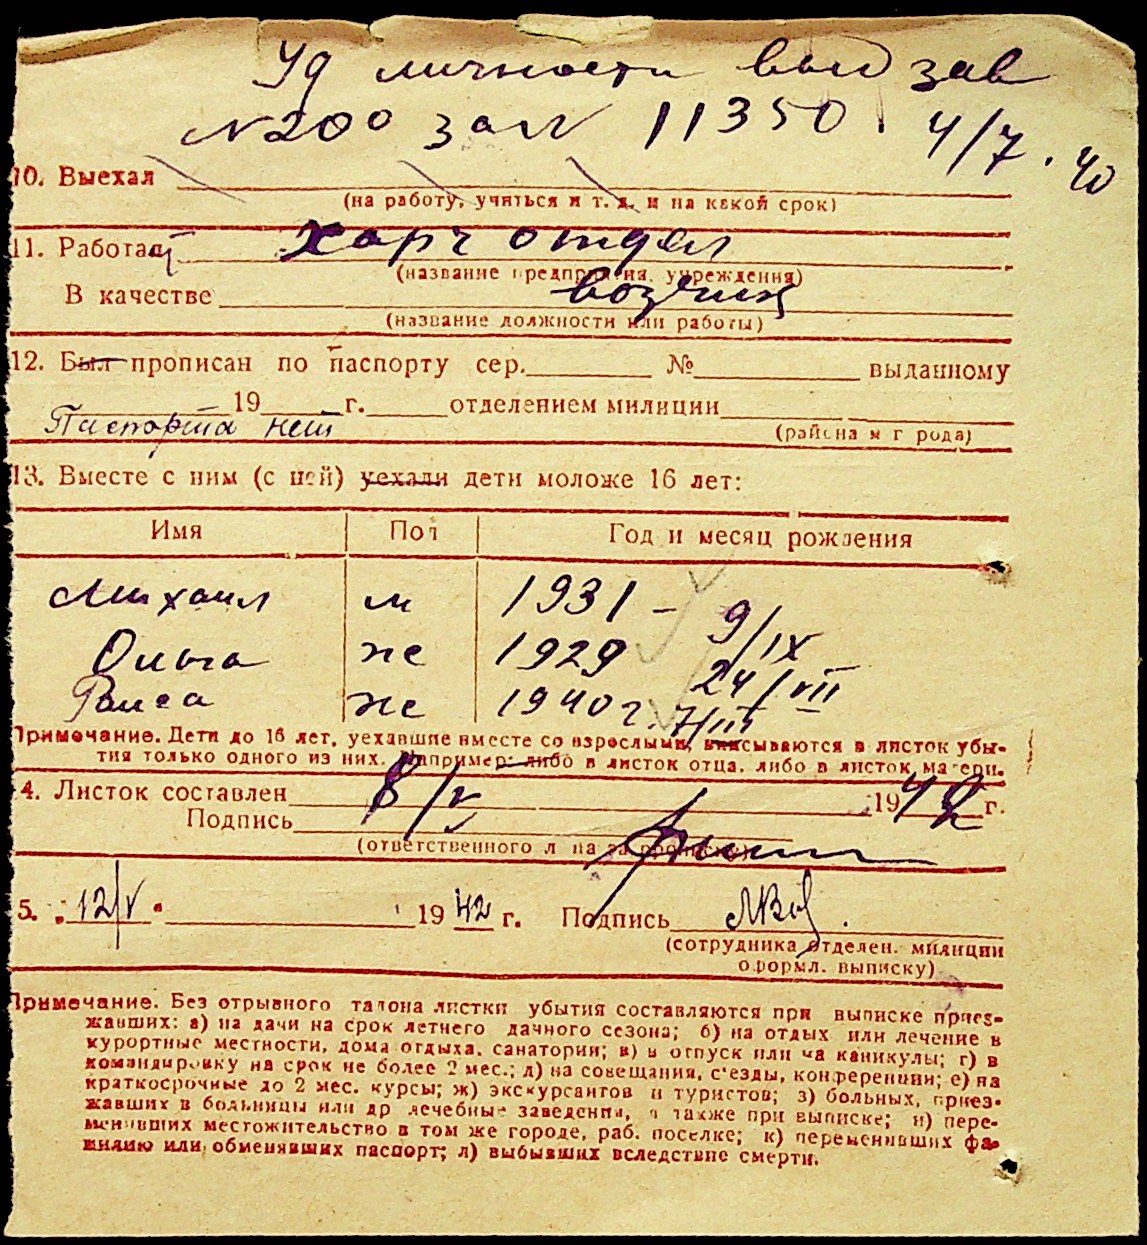 Уд личности выд зав
№200 зап 11350. 4/7.40
10. Выехал
(на работу, учиться и т. д. и на какой срок)
11. Работает Харч отдел
(название предприятия, учреждения)
В качестве возчик
(название должности или работы)
12. Был прописан по паспорту сер. № выданному
19 г. отделением милиции
Паспорта нет
(района и города)
13. Вместе с ним (с ней) уехали дети моложе 16 лет:
Имя Пол Год и месяц рождения
Михаил м 1931 - 9/IX
Ольга же 1929 24/VII
Раиса же 1940 г. 7/III
Примечание. Дети до 16 лет, уехавшие вместе со взрослыми, вписываются в листок убы-
тия только одного из них. Например: либо в листок отца, либо в листок матери.
4. Листок составлен 8/V 1942 г.
Подпись
(ответственного л на за прописку)
5. „12/V" 1942 г. Подпись
(сотрудника отделен. милиции
оформл. выписку)
Примечание. Без отрывного талона листки убытия составляются при выписке приез-
жавших: а) на дачи на срок летнего дачного сезона; б) на отдых или лечение в
курортные местности, дома отдыха, санатории; в) в отпуск или на каникулы; г) в
командировку на срок не более 2 мес.; д) на совещания, с'езды, конференции; е) на
краткосрочные до 2 мес. курсы; ж) экскурсантов и туристов; з) больных, приез-
жавших в больницы или др лечебные заведения, а также при выписке; и) пере-
менивших местожительство в том же городе, раб. поселке; к) переменивших фа-
милию или обменявших паспорт; л) выбывших вследствие смерти.